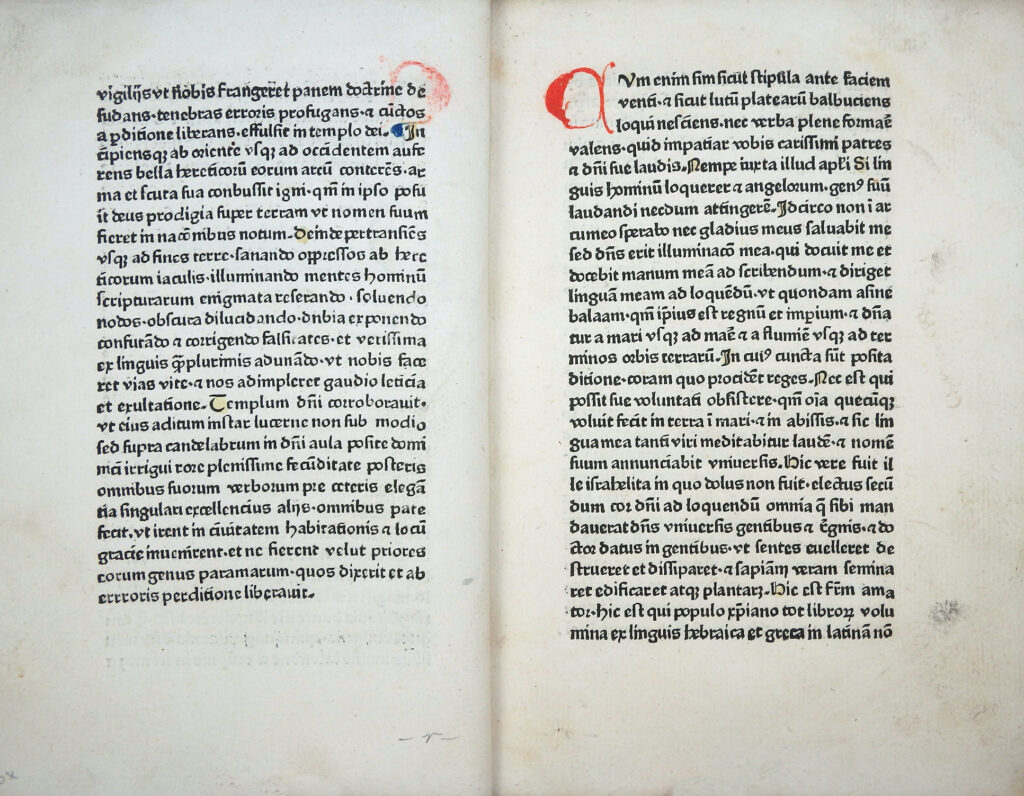 vigilijs vt nobis frangeret panem doctrine de
fudans·tenebras erroris profugans·⁊ cũctos
a ꝑditione liberans·effulsit in templo dei· In
cipiensqꝫ ab oriente vsqꝫ ad occidentem aufe
rens bella hereticorũ eorum arcũ conterẽs·ar
ma et scuta sua conbussit igni·qm̃ in ipso posu
it deus prodigia super terram vt nomen suum
fieret in nacõnibus notum·Deinde pertransiẽs
vsqꝫ ad fines terre·sanando oppressos ab here
ticorum iaculis·illuminando mentes hominũ
scripturarum enigmata reserando·soluendo
nodos·obscura dilucidando·dubia exponendo
confutãdo ⁊ corrigendo falsitates·et verissima
ex linguis q̃plurimis adunãdo·vt nobis face
ret vias vite·⁊ nos adimpleret gaudio leticia
et exultatione·Templum dñi corroborauit·
vt eius aditum instar lucerne non sub modio
sed supra candelabrum in dñi aula posite domi
irrigui rore plenissime fecũditate posteris
omnibus suorum verborum pre ceteris elegã
tia singulari excellencius alijs·omnibus pate
fecit·vt irent in ciuitatem habitationis ⁊ locũ
gracie inuenirent·et ne fierent velut priores
eorum genus paramarum·quos dixerit et ab
errroris perditione liberauit·
CVm enim sim sicut stipula ante faciem
venti·⁊ sicut lutũ platearũ balbuciens
loqui nesciens·nec verba plene formare
valens·quid impatiar vobis carissimi patres
⁊ dñi sue laudis·Nempe iuxta illud apl̃i Si lin
guis hominũ loquerer ⁊ angelorum·genꝰ suũ
laudandi necdum attingerẽ·Idcirco non ĩ ar
cu meo sperabo nec gladius meus saluabit me
sed dñs erit illuminacõ mea·qui docuit me et
docebit manum meã ad scribendum·⁊ diriget
linguã meam ad loquẽdũ·vt quondam asine
balaam·qm̃ ipsius est regnũ et impium·⁊ dñã
tur a mari vsqꝫ ad mare ⁊ a flumie vsqꝫ ad ter
minos orbis terrarũ·In cuiꝰ cuncta sũt posita
ditione·coram quo procidẽt reges·Nec est qui
possit sue voluntati obsistere·qm̃ oĩa quecũqꝫ
voluit fecit in terra ĩ mari·⁊ in abissis·⁊ sic lin
gua mea tanti viri meditabitur laudẽ·⁊ nomẽ
suum annunciabit vniuersis·Hic vere fuit il
le israhelita in quo dolus non fuit·electus secũ
dum cor dñi ad loquendũ omnia q̃ sibi man
dauerat dñs vniuersis gentibus ⁊ regnis·⁊ do
ctor datus in gentibus·vt sentes euelleret de
strueret et dissiparet·⁊ sapiãm veram semina
ret edificaret atqꝫ plantarꝫ·Hic est frm̃ ama
tor·hic est qui populo xp̃iano tot librorꝝ volu
mina ex linguis hebraica et greca in latinã nõ